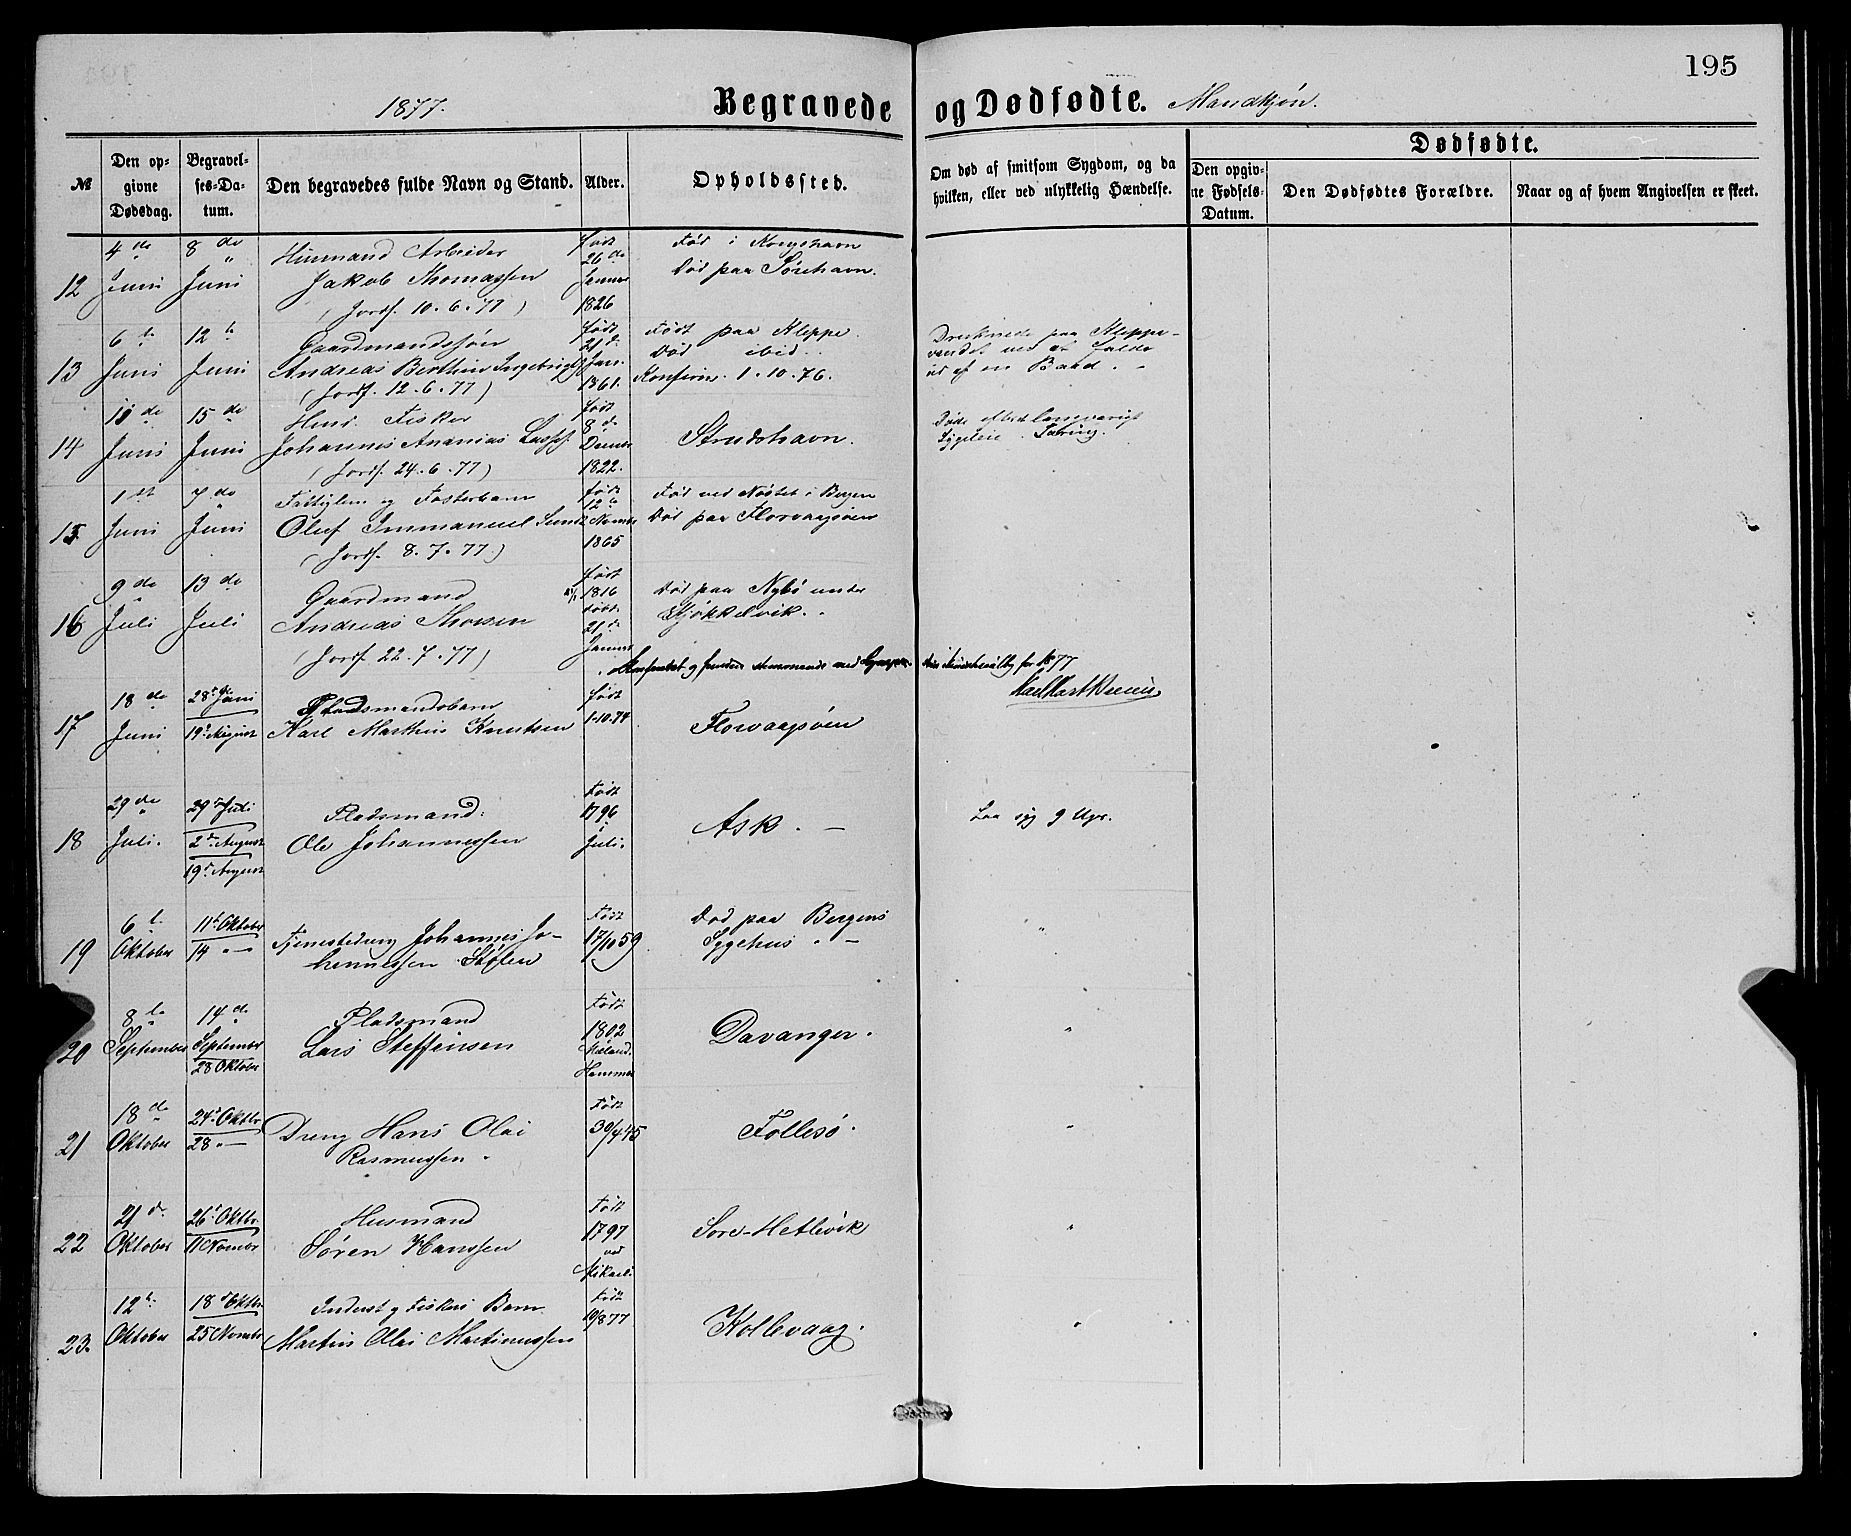 195
1877.
Begravede og Dødfødte. Mandkjøn.
№
Den opgivne Dødsdag.
Begravelses-Datum.
Den begravedes fulde Navn og Stand.
Alder.
Opholdssted.
Om død af smitsom Sygdom, og da hvilken, eller ved ulykkelig Hændelse.
Dødfødte.
Den opgivne Fødsels-Datum.
Den Dødfødtes Forældre.
Naar og af hvem Angivelsen er skeet.
12
4de Juni
8de Juni
Husmand Arbeider
Jakob Thomassen
(Jordf. 10.6.77)
født 26de Januar 1826
Død paa Sørehavn.
13
6te Juni
12te Juni
Gaardmandssøn
Andreas Berthin Ingebrigts.
(Jordf. 12.6.77)
født 21de Jan. 1861.
Født paa Kleppe.
Død ibid.
Konfirm. 1.10.76.
Druknede paa Kleppe-
vandet ved at falde
ud af en Baad.
14
10de Juni
15de Juni
Fisker
Johannes Ananias Lasss.
(Jordf. 24.6.77)
født 8de 1822.
Strudshavn.
Sygeleie
15
1st Juni
7de Juni
og Fosterbarn
Oluf Immanuel
(Jordf. 8.7.77)
født 12te 1865
Død ved Nøstet i Bergen
Død paa Florvaagsøen
16
9de Juli
13de Juli
Gaardmand
Andreas Thorsen
(Jordf. 22.7.77)
født 1816
døbt 21de Januar
Død paa Nybø under
Skjøkkelvik.
for 1877
17
18de Juni
28de Juni
19de August
Pladsmandsbarn
Karl Marthin Knutsen
født 1.10.74
Florvaagsøen
18
29de Juli.
29de Juli
2de August
19de August
Pladsmand.
Ole Johannessen
Født 1796 Juli.
Ask. —
Laa syg 9 Uger.
19
6te Oktober
11te Oktober
14 " —
Tjenestedreng Johannes Jo-
hannessen Støten
Født 17/10 59
Død paa Bergens
Sygehus " —
20
8te September
14de September
28 Oktober
Pladsmand
Lars Steffensen
Født 1802
Hammer
Davanger.
21
18de Oktober
24de Oktbr.
28 " —
Dreng Hans Olai
Rasmussen
Født 30/4
Follesø.
22
21de Oktober
26de Oktbr.
11 Novembr
Husmand
Søren Hanssen
Født 1797 ved Mikaeli
Søre-Hetlevik
23.
12te Oktober
18de Oktbr.
25 Novembr
Inderst og Fiskers Barn.
Martin Olai Martinussen
Født 10/8 77
Kollevaag.